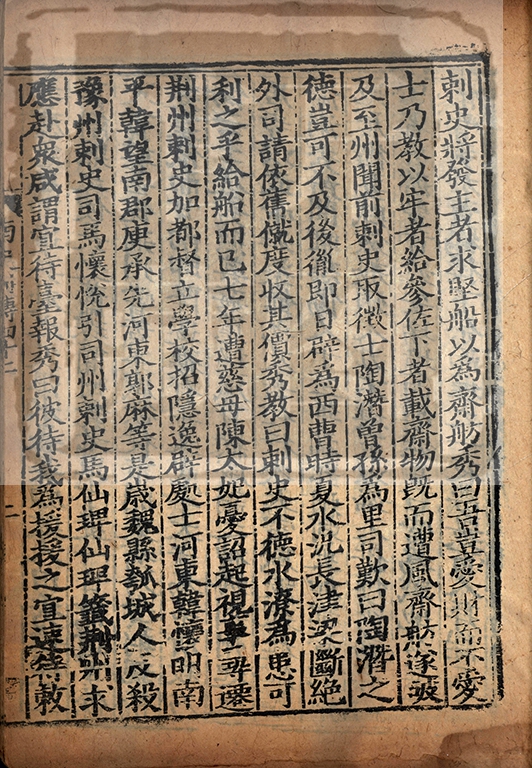 刺史將發主者求堅船以爲齋舫秀曰吾豈愛財而不愛
士乃教以牢者給參佐下者載齋物旣而遭風齋舫遂破
及至州聞前刺史取徵士陶潛曾孫爲里司歎曰陶潛之
德豈可不及後胤卽日辟爲西曹時夏水汎長津梁斷絕
外司請依舊僦度收其價秀教曰刺史不德水潦爲患可
利之乎給船而已七年遭慈母陳太妃憂詔起視事尋遷
荆州刺史加都督立學校招隱逸辟處士河東韓懷明南
平韓望南郡庾承先河東郭麻等是歲魏縣瓠城人反殺
豫州刺史司馬懷悅引司州刺史馬仙琕仙琕籤荆州求
應赴衆咸謂宜待臺報秀曰彼待我爲援援之宜速待敕